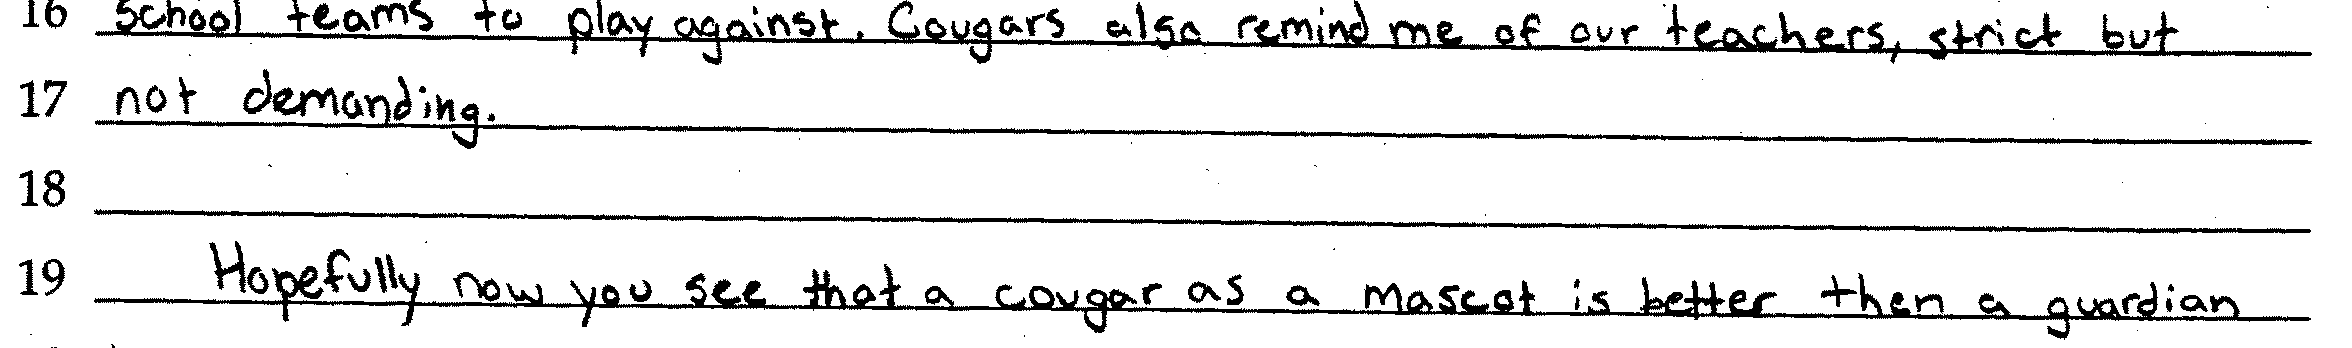 16 School teams to play against. Cougars also remind me of our teachers, strict but
17 not demanding.
18
19 Hopefully now you see that a cougar as a mascot is better then a guardian